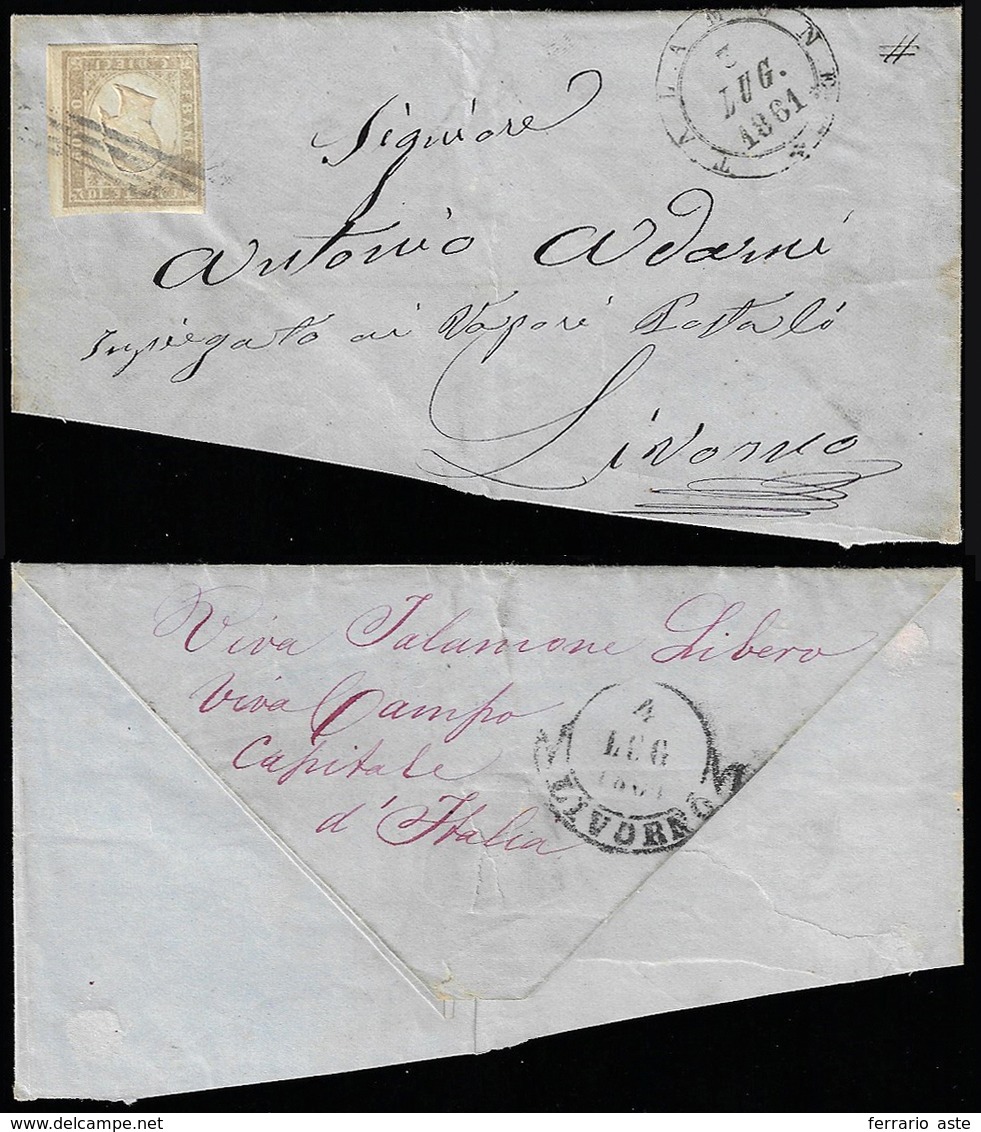 TALAMONE
3
LUG.
1861
#
Signiore
Antonio Adami
Inpiegato ai Vapori Postali
Livorno
Viva Talamone Libero
Viva Campo
Capitale
d'Italia
4
LUG
LIVORNO
ferrario aste